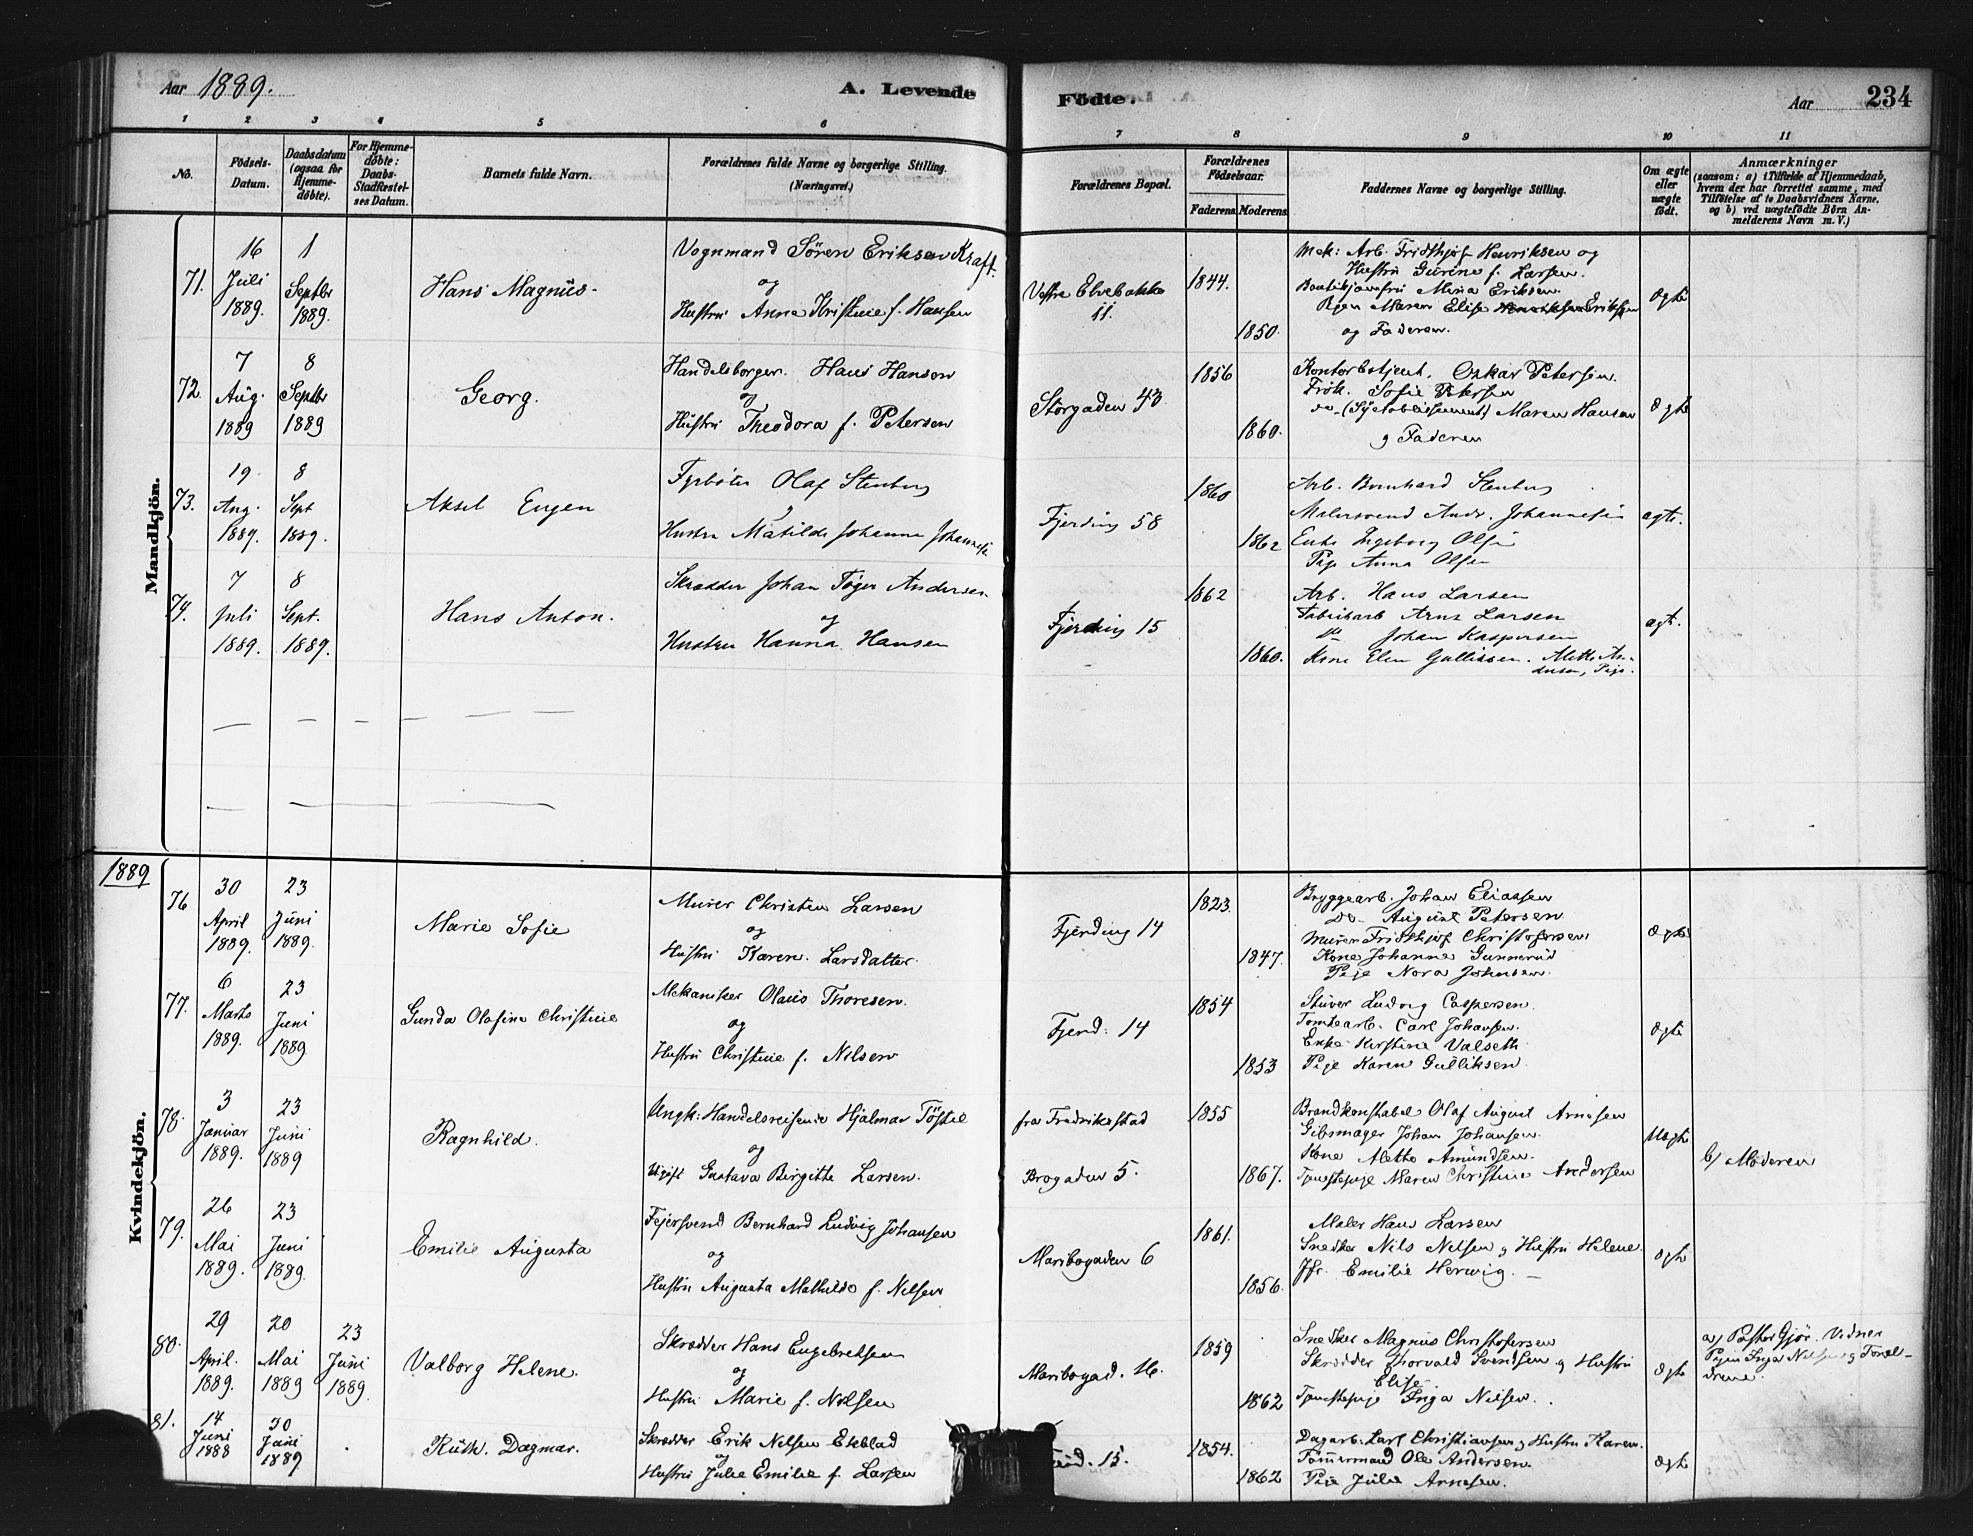 Aar 1889.
A. Levende
Födte.
Aar
234
1 2 3 4 5 6 7 8 9 10 11
No.
Födsels-
Datum.
Daabsdatum
(ogsaa for
Hjemme-
döbte).
For Hjemme-
döbte:
Daabs-
Stadfæstel-
ses Datum.
Barnets fulde Navn.
Forældrenes fulde Navne og borgerlige Stilling.
(Næringsvei.)
Forældrenes Bopæl.
Forældrenes
Födselsaar.
Faderens. Moderens.
Faddernes Navne og borgerlige Stilling.
Om ægte
eller
uægte
födt.
Anmærkninger
(saasom: a) i Tilfælde af Hjemmedaab,
hvem der har forrettet samme, med
Tilföielse af to Daabsvidners Navne,
og b) ved uægtefödte Börn An-
melderens Navn m. V.)
Mandkjön.
71.
16
Juli
1889.
1
Septbr
1889.
Hans Magnus.
Vognmand Sören Eriksen Kraft.
og
Hustru Anna Kristine f. Hansen
Vestre Elvebakke
11.
1844.
1850.
Mek: Arb. Fridthjof Henriksen og
Hustru Gurine f. Larsen.
Mina Eriksen.
Pigen Maren Elise Eriksen
og Faderen.
Ægte
72.
7
Aug.
1889
8
Septbr
1889
Georg.
Handelsborger. Hans Hansen
og
Hustru Theodora f. Petersen
Storgaden 43.
1856
1860.
Kontorbetjent. Oskar Petersen.
Frök. Sofie Petersen
do (Syetablissement) Maren Hansen
og Faderen
Ægte
73.
19.
Aug.
1889.
8
Sept
1889.
Aksel Eugen
Fyrböter Olaf Stenberg
og
Hustru Matilde Johanne Johannesen
Fjerding 58
1860
1862
Arb. Bernhard Stenberg
Malersvend Andr. Johannesen
Enke Ingeborg Olsen
Pige Anna Olsen
ægte.
74.
7
Juli
1889.
8
Sept.
1889.
Hans Anton.
Skrædder Johan Töger Andersen
og
Hustru Hanna Hansen
Fjerding 15
1862
1860.
Arb. Hans Larsen
Fabrikarb Arns Larsen
do Johan Kaspersen
Kone Elen Gullissen. Alette An-
dersen, Pige.
ægt.
1889
Kvindekjön.
76
30
April
1889.
23
Juni
1889.
Marie Sofie
Murer Christen Larsen
og
Hustru Karen Larsdatter.
Fjerding 14
1823.
1847.
Bryggearb. Johan Eliassen
Do. August Petersen
Murer Fridthjof Christofersen
Kone Johanne Gunnerud
Pige Nora Johnsen.
Ægte
77.
6
Marts
1889.
23
Juni
1889
Gunda Olafine Christine
Mekaniker Olaus Thoresen.
og
Hustru Christine f. Nilsen
Fjerd: 14
1854
1853
Stuver Ludvig Caspersen.
Tomtearb. Carl Johansen.
Enke Kirstine Valseth
Pige Karen Gulliksen
Ægte
78.
3
Januar
1889.
23
Juni
1889
Ragnhild.
Ungk: Handelsreisende Hjalmar Töstie
og
Ugift Gustava Birgitte Larsen.
fra Fredrikstad
Brogaden 5.
1855
1867.
Brandkonstabel Olaf August Arnesen
Gibsmager Johan Johansen.
Kone Alette Amundsen.
Tjenestepige Maren Christine Andersen
Uægte
b) Moderen
79.
26
Mai
1889.
23
Juni
1889.
Emilie Augusta
Fejersvend Bernhard Ludvig Johansen
og
Hustru Augusta Mathilde f. Nilsen
Maribogaden 6
1861.
1856.
Maler Hans Larsen
Snedker Nils Nilsen og Hustru Helene
Jfr. Emilie Herwig.
Ægte
80.
29
April.
1889.
20
Mai
1889
23
Juni
1889.
Valborg Helene.
Skrædder Hans Engebretsen
og
Hustru Marie f. Nilsen
Maribogad. 16.
1859
1862
Snedker Magnus Christofersen
Skrædder Thorvald Svendsen og Hustru
Elise
Tjenestepige Inga Nilsen.
Ægte
a) Pastor Gjör. Vidner
Pigen Inga Nilsen og
81.
14
Juni
1888
30
Juni
1889
Ruth. Dagmar.
Skrædder Erik Nilsen Ekblad
og
Hustru Julie Emilie f. Larsen
15.
1854.
1862
Dagarb. Carl Christiansen og Hustru Karen.
Tömmermand Ole Andersen.
Pige Julie Arnesen.
Ægte